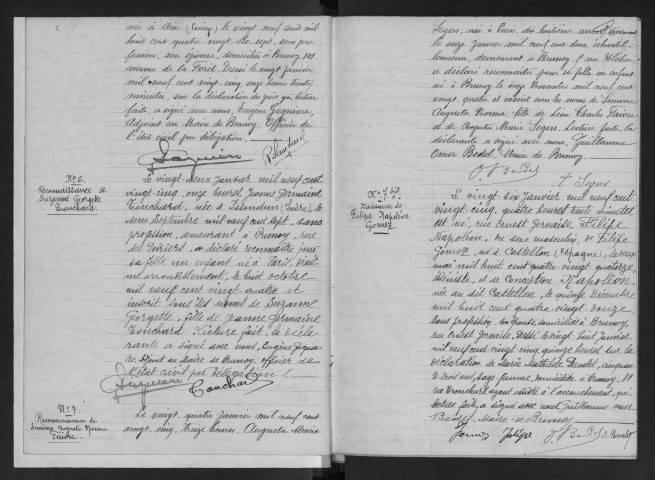 née à Aix (Corrèze) le vingt neuf août mil
huit cent quatre vingt dix sept, sans pro-
fession, son épouse, domiciliés à Brunoy, 101
avenue de la Forêt. Dressé le vingt janvier
mil neuf cent vingt cinq, onze heures trente
minutes, sur la déclaration du père qui, lecture
faite, a signé avec nous, Eugène Jaqniare,
Adjoint au Maire de Brunoy, Officier de
l'état civil par délégation.
No 6.
Reconnaissance de
Suzanne Georgette
Touchard.
Le vingt deux janvier mil neuf cent
vingt cinq, onze heures, Jeanne Germaine
Touchard, née à Issoudun (Indre) le
deux septembre mil neuf cent sept, sans
profession, demeurant à Brunoy, rue
des a déclaré reconnaître pour
sa fille un enfant né à Paris, vingt
un arrondissement, le huit octobre
mil neuf cent vingt quatre et
inscrit sous les noms de Suzanne
Georgette, fille de Jeanne Germaine
Touchard. Lecture faite, la décla-
rante a signé avec nous, Eugène Jaqnia-
re, Adjoint au Maire de Brunoy, officier de
l'état civil par délégation.
Touchard
No 7.
Reconnaissance de
Simone Augusta Norma
Faivre.
Le vingt quatre janvier mil neuf cent
vingt cinq, treize heures, Augusta Maria
Segers, née à Paris, dix huitième arrondissement
le onze janvier mil neuf cent deux, échantil-
lonneuse, demeurant à Brunoy, rue
a déclaré reconnaître pour sa fille un enfant
né à Brunoy le onze novembre mil neuf cent
vingt quatre et inscrit sous les noms de Simone
Augusta Norma, fille de Léon Charles Faivre
et de Augusta Maria Segers. Lecture faite, la
déclarante a signé avec nous, Guillaume
Omer Bedel, Maire de Brunoy.
Segers
No 7 bis.
Naissance de
Filipe Napoléon
Gomez
Le vingt six janvier mil neuf cent
vingt cinq, quatre heures huit minutes,
est né, rue Ernest Gervaise, Filipe
Napoléon, du sexe masculin, de Filipe
Gomez, né à Castellon (Espagne), le
mai mil huit cent quatre vingt quatorze,
et de Conception Napoléon,
née au dit Castellon, le quinze décembre
mil huit cent quatre vingt douze,
sans profession, son épouse, domiciliés à Brunoy,
rue Ernest Gervaise. Dressé le vingt huit janvier
mil neuf cent vingt cinq, quinze heures, sur la
déclaration de Marie Mathilde
trois ans, sage femme, domiciliée à Brunoy,
rue Tronchard, ayant assisté à l'accouchement, qui,
lecture faite, a signé avec nous, Guillaume Omer
Bedel, Maire de Brunoy.